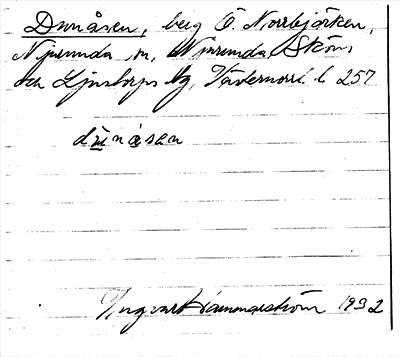 Dunåsen, berg Ö. Norrbjörken,
Njurunda sn, Njurunda, Sköns
och Ljustorps tg, Västernorrl. l. 257
dùnåsen
Ingvar Hammarström 1932